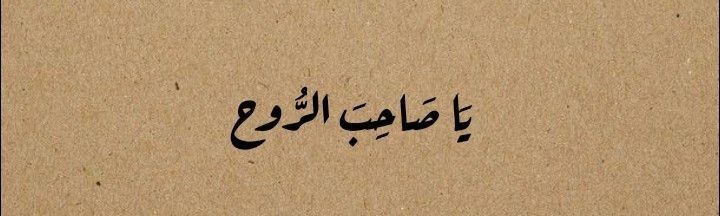 يَا صَاحِبَ الرُّوح